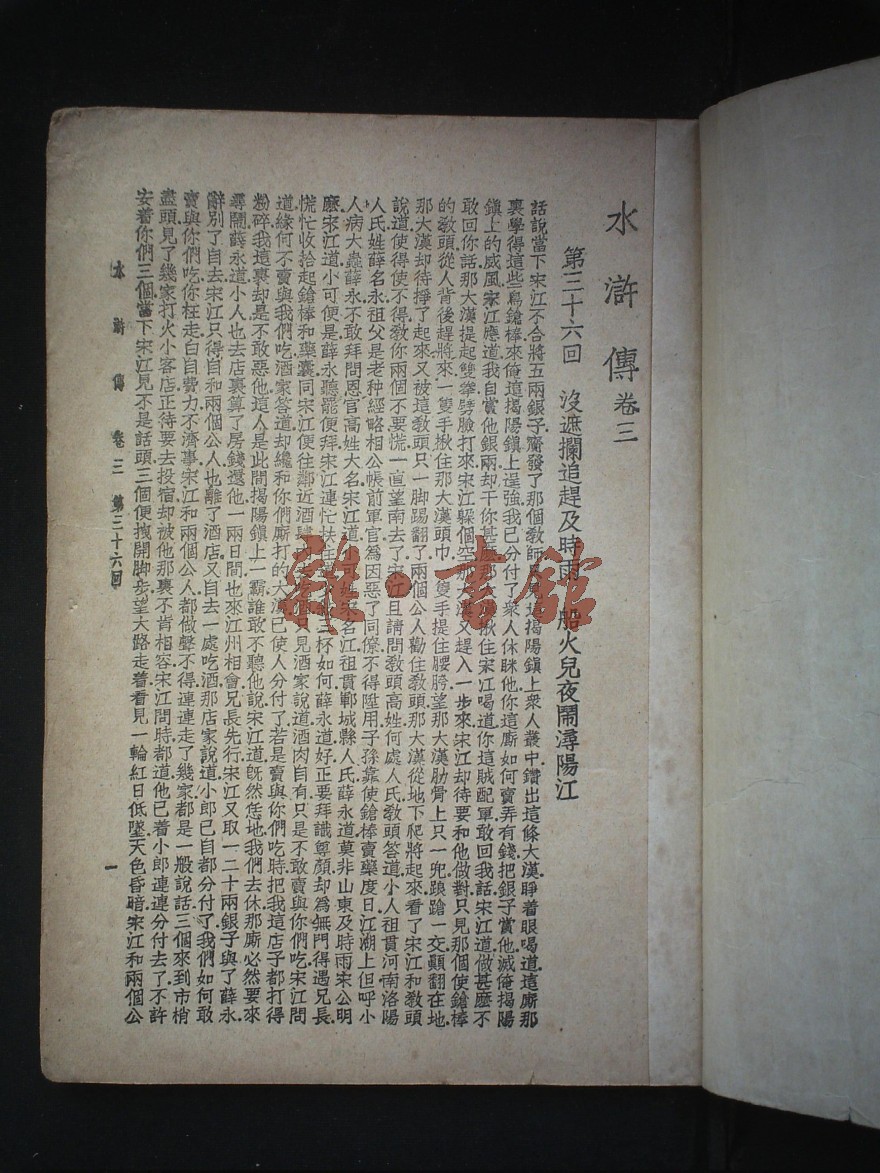 水滸傳卷三
第三十六回　沒遮攔追趕及時雨　船火兒夜鬧潯陽江
話說當下宋江不合將五兩銀子齎發了那個教師只見這揭陽鎮上衆人叢中鑽出這條大漢睜着眼喝道這廝那
裏學得這些鳥鎗棒來俺這揭陽鎮上逞強我已分付了衆人休睬他你這廝如何賣弄有錢把銀子賞他滅俺揭陽
鎮上的威風宋江應道我自賞他銀兩却干你甚麽那大漢揪住宋江喝道你這賊配軍敢回我話宋江道做甚麽不
敢回你話那大漢提起雙拳劈臉打來宋江躲個空那大漢又趕入一步來宋江却待要和他做對只見那個使鎗棒
的教頭從人背後趕將來一隻手揪住那大漢頭巾一隻手提住腰胯望那大漢肋骨上只一兜踉蹌一交顚翻在地
那大漢却待掙了起來又被這教頭只一脚踢翻了兩個公人勸住教頭那大漢從地下爬將起來看了宋江和教頭
說道使得使不得教你兩個不要慌一直望南去了宋江且請問教頭高姓何處人氏教頭答道小人祖貫河南洛陽
人氏姓薛名永祖父是老种經略相公帳前軍官爲因惡了同僚不得陞用子孫靠使鎗棒賣藥度日江湖上但呼小
人病大蟲薛永不敢拜問恩官高姓大名宋江道小可姓宋名江祖貫鄆城縣人氏薛永道莫非山東及時雨宋公明
麽宋江道小可便是薛永聽罷便拜宋江連忙扶住道少叙三杯如何薛永道好正要拜識尊顏却爲無門得遇兄長
慌忙收拾起鎗棒和藥囊同宋江便往鄰近酒肆內去吃酒只見酒家說道酒肉自有只是不敢賣與你們吃宋江問
道緣何不賣與我們吃酒家答道却纔和你們廝打的大漢已使人分付了若是賣與你們吃時把我這店子都打得
粉碎我這裏却是不敢惡他這人是此間揭陽鎮上一霸誰敢不聽他說宋江道旣然恁地我們去休那廝必然要來
尋鬧薛永道小人也去店裏算了房錢還他一兩日間也來江州相會兄長先行宋江又取一二十兩銀子與了薛永
辭別了自去宋江只得自和兩個公人也離了酒店又自去一處吃酒那店家說道小郎已自都分付了我們如何敢
賣與你們吃你枉走白自費力不濟事宋江和兩個公人都做聲不得連連走了幾家都是一般說話三個來到市梢
盡頭見了幾家打火小客店正待要去投宿却被他那裏不肯相容宋江問時都道他已着小郎連連分付去了不許
安着你們三個當下宋江見不是話頭三個便拽開脚步望大路走着看見一輪紅日低墜天色昏暗宋江和兩個公
水滸傳　卷三　第三十六回　一
雜·書館